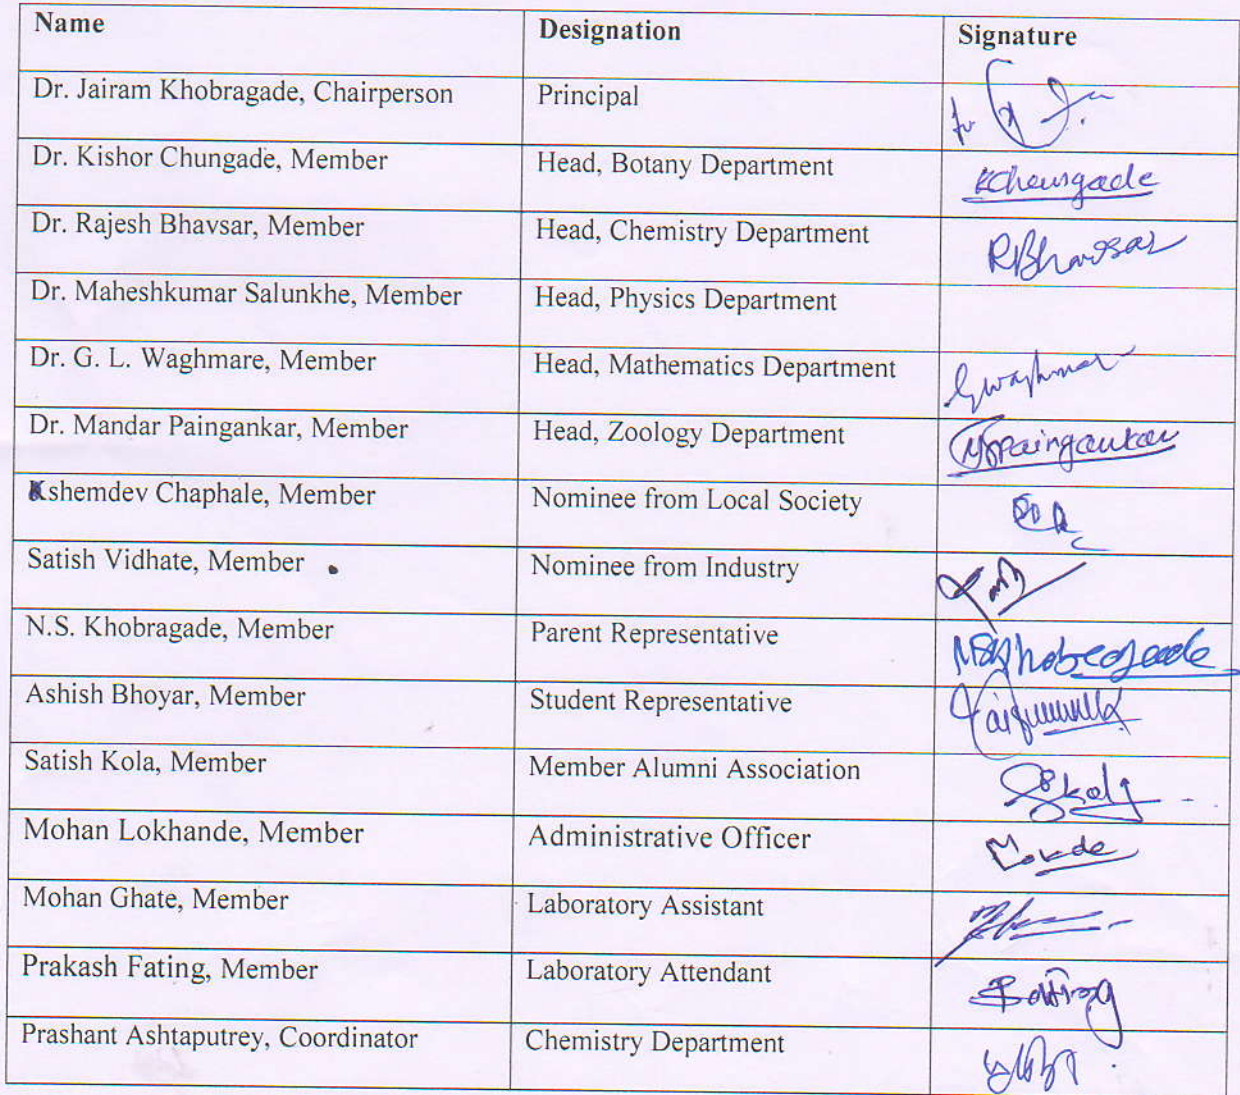 Name Designation Signature
Dr. Jairam Khobragade, Chairperson Principal
Dr. Kishor Chungade, Member Head, Botany Department KChungade
Dr. Rajesh Bhavsar, Member Head, Chemistry Department RBhavsar
Dr. Maheshkumar Salunkhe, Member Head, Physics Department
Dr. G. L. Waghmare, Member Head, Mathematics Department Gwaghmar
Dr. Mandar Paingankar, Member Head, Zoology Department Mpaingankar
Kshemdev Chaphale, Member Nominee from Local Society
Satish Vidhate, Member Nominee from Industry
N.S. Khobragade, Member Parent Representative NSKhobragade
Ashish Bhoyar, Member Student Representative
Satish Kola, Member Member Alumni Association
Mohan Lokhande, Member Administrative Officer
Mohan Ghate, Member Laboratory Assistant
Prakash Fating, Member Laboratory Attendant
Prashant Ashtaputrey, Coordinator Chemistry Department